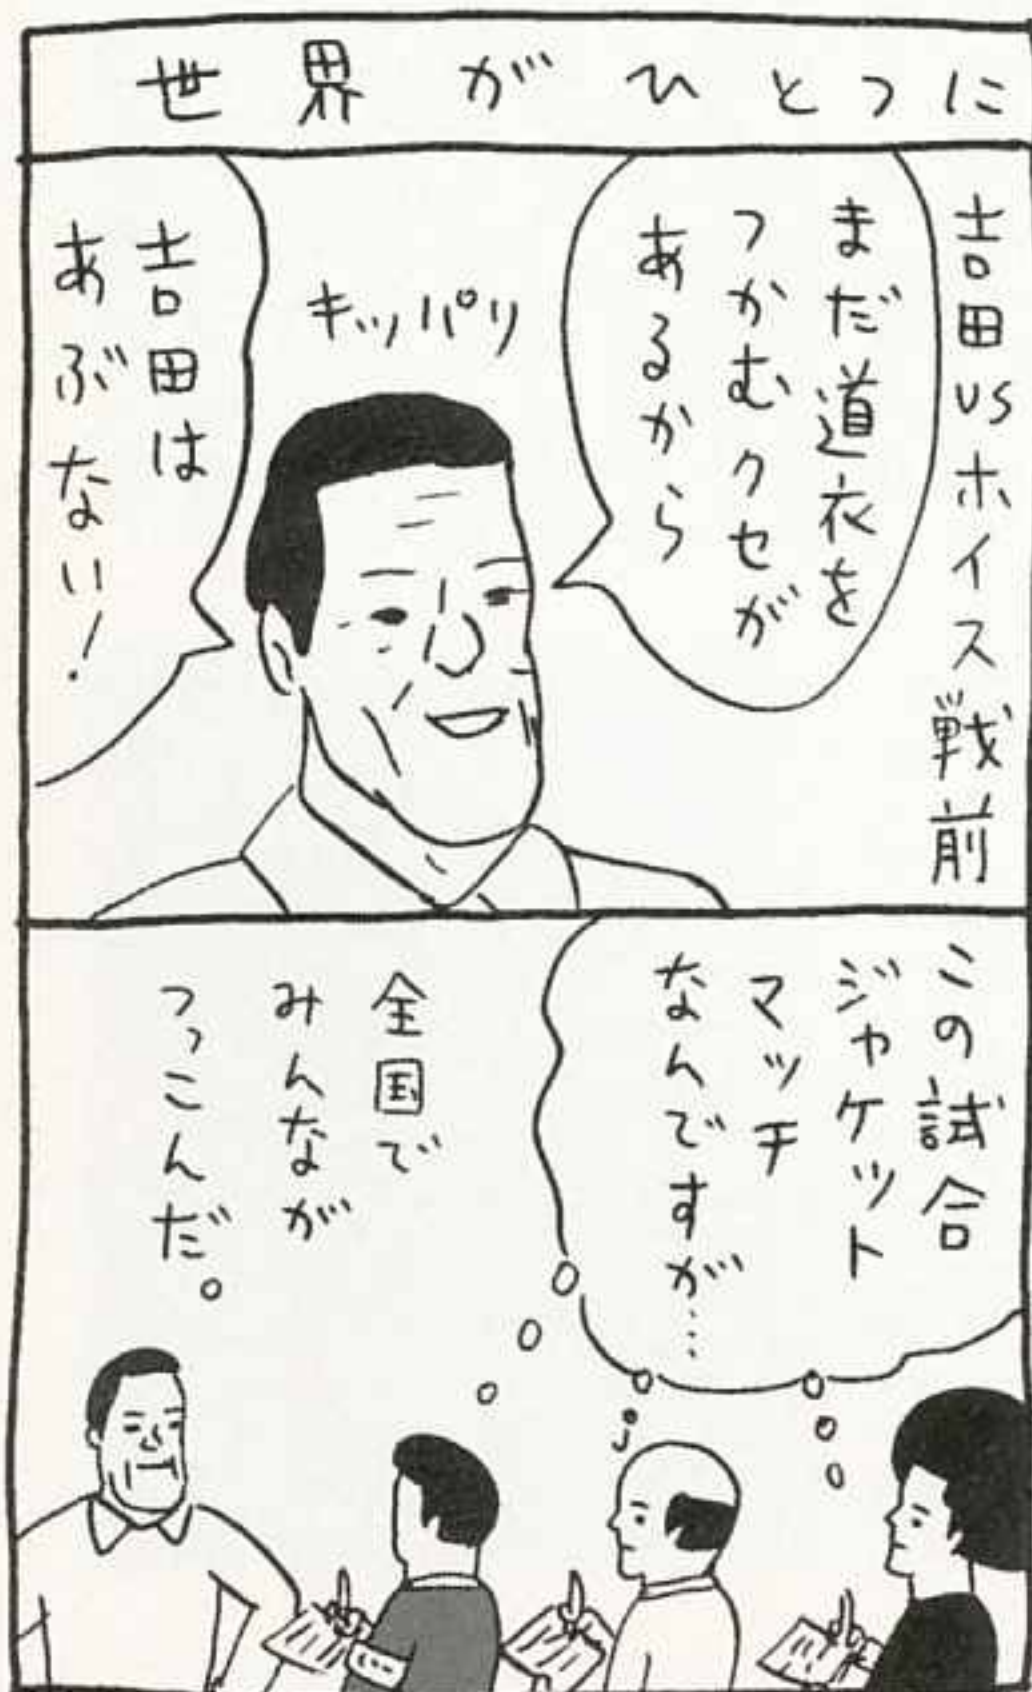 世界がひとつに
吉田vsホイス戦前
まだ道衣を
つかむクセが
あるから
キッパリ
吉田は
あぶない!
この試合
ジャケット
マッチ
なんですが…
全国で
みんなが
つっこんだ。